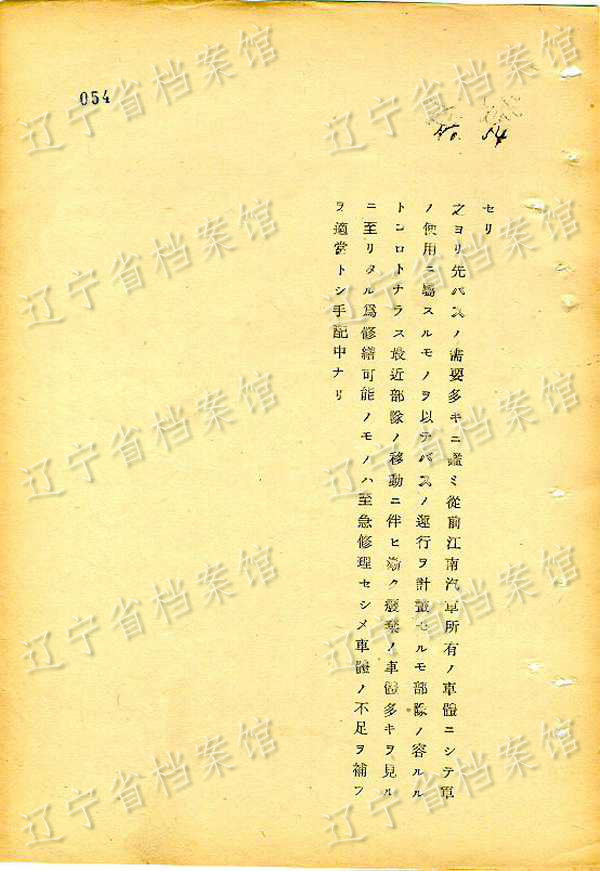 054
No. 54
セリ
之ヨリ先バスノ需要多キニ鑑ミ從前江南汽車所有ノ車體ニシテ軍
ノ使用ニ屬スルモノヲ以テバスノ運行ヲ計畫セルモ部隊ノ容ルル
トコロトナラス最近部隊ノ移動ニ伴ヒ漸ク廢棄ノ車體多キヲ見ル
ニ至リタル爲修繕可能ノモノハ至急修理セシメ車體ノ不足ヲ補フ
ヲ適當トシ手配中ナリ
辽宁省档案馆
辽宁省档案馆
辽宁省档案馆
辽宁省档案馆
辽宁省档案馆
辽宁省档案馆
辽宁省档案馆
辽宁省档案馆
辽宁省档案馆
辽宁省档案馆